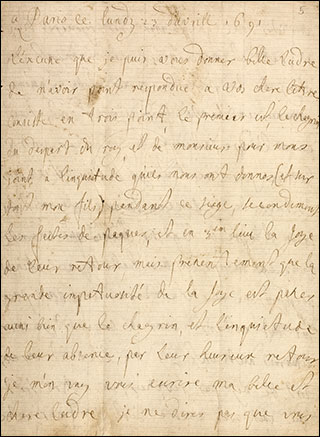 5
a Paris ce lundy 23 d'avrill 1691
l'excuse que je puis vous donner belle Ludre
de n'avoir point respondue a vos chere lettre
consiste en trois point le premier est le chagrin
du depart du roy et de monsieur pour mons
joint a l'inquietude qu'ils nous ont donnes (et sur
tout mon fils) pendant ce siege,
les festes de paques, et en 3 lieu la joye
de leur retour mais presentement que la
grande impetuosité de la joye est passes
aussi bien que le chagrin et l'inquietude
de leur absence, par leur heureux retour
je m'en vay vous escrire ma belle et
chere Ludre je ne dires pas que vous